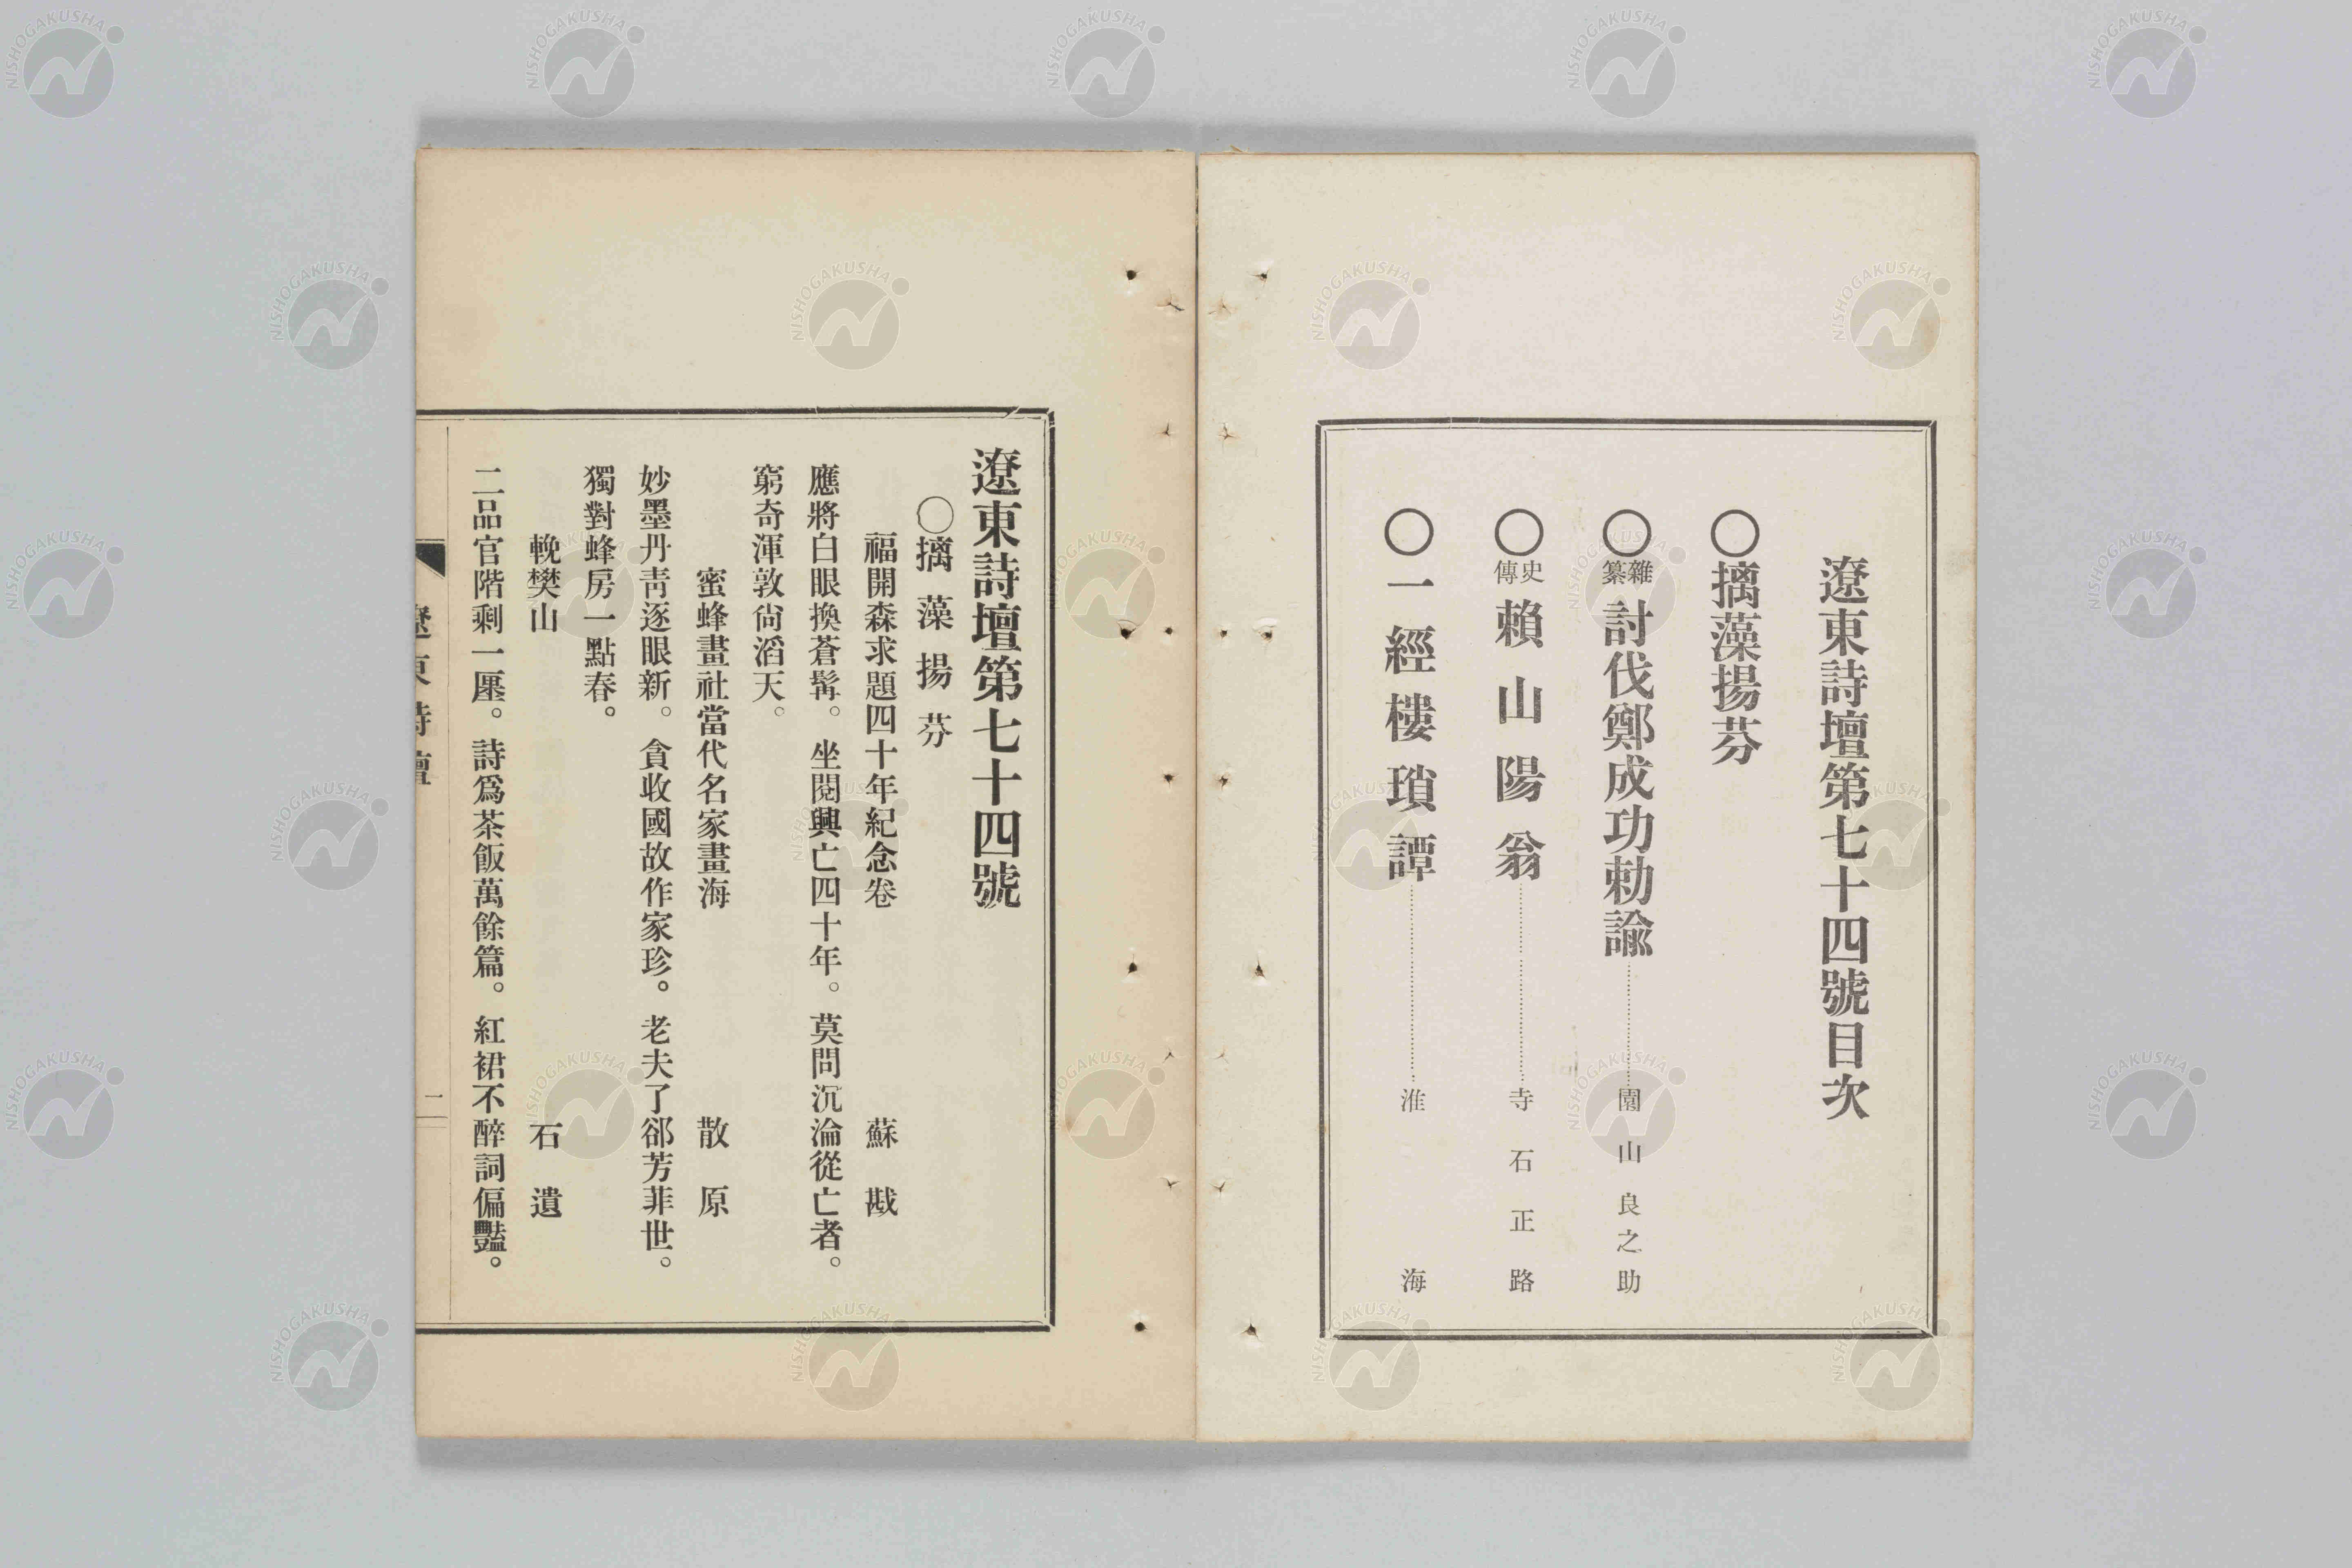 遼東詩壇第七十四號目次
〇摛藻揚芬
〇雜纂 討伐鄭成功勅諭 園山良之助
〇史傳 賴山陽翁 寺石正路
〇一經樓瑣譚 淮海
遼東詩壇第七十四號
〇摛藻揚芬
福開森求題四十年紀念卷 蘇戡
應將白眼換蒼髯。坐閱興亡四十年。莫問沉淪從亡者。
窮奇渾敦尙滔天。
蜜蜂畫社當代名家畫海 散原
妙墨丹靑逐眼新。貪收國故作家珍。老夫了郤芳菲世。
獨對蜂房一點春。
輓樊山 石遺
二品官階剩一廛。詩爲茶飯萬餘篇。紅裙不醉詞偏豔。
遼東詩壇
一
NISHOGAKUSHA